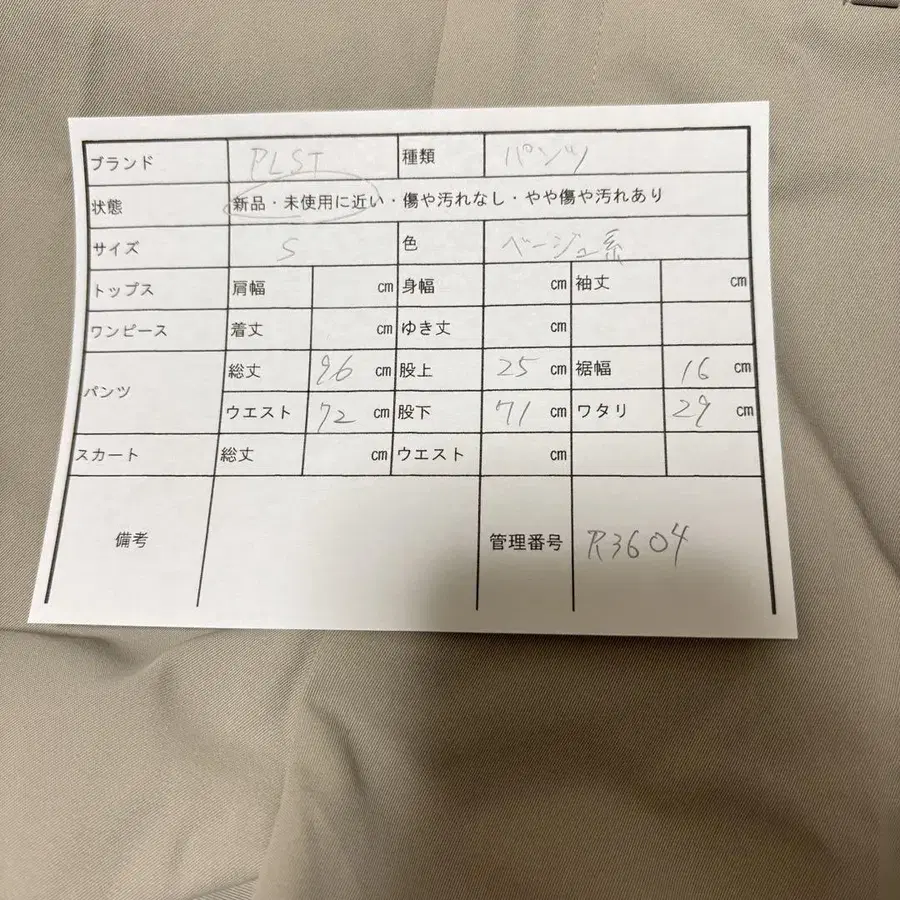 ブランド PLST 種類 パンツ
状態 新品・未使用に近い・傷や汚れなし・やや傷や汚れあり
サイズ S 色 ベージュ系
トップス 肩幅 cm 身幅 cm 袖丈 cm
ワンピース 着丈 cm ゆき丈 cm
パンツ 総丈 96 cm 股上 25 cm 裾幅 16 cm
ウエスト 72 cm 股下 71 cm ワタリ 29 cm
スカート 総丈 cm ウエスト cm
備考 管理番号 R3604